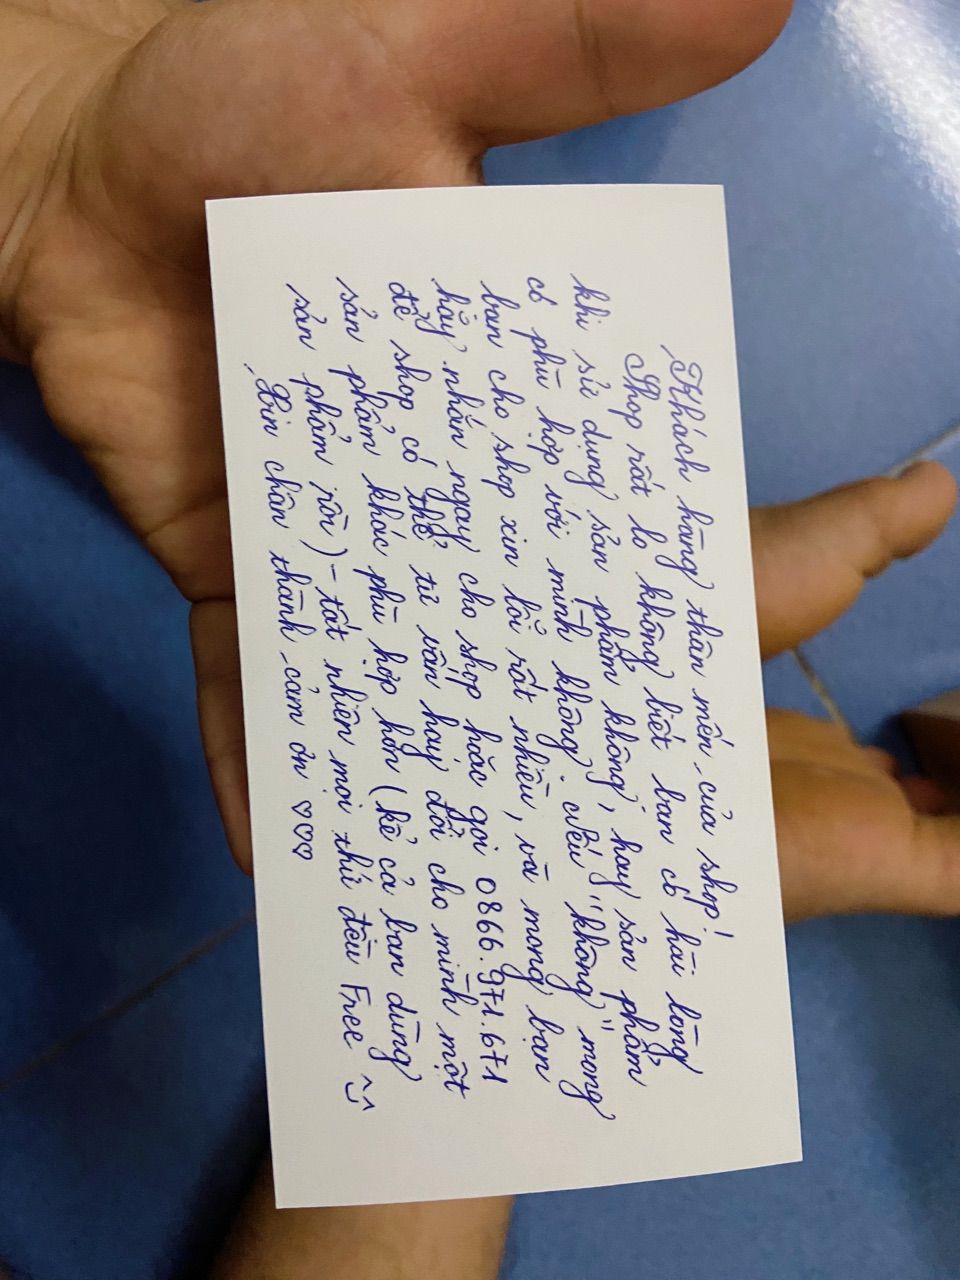 Khách hàng thân mến của shop!
Shop rất lo không biết bạn có hài lòng
khi sử dụng sản phẩm không, hay sản phẩm
có phù hợp với mình không, nếu "không" mong
bạn cho shop xin lỗi rất nhiều, và mong bạn
hãy nhắn ngay cho shop hoặc gọi 0866.971.671
để shop có thể tư vấn hay đổi cho mình một
sản phẩm khác phù hợp hơn (kể cả bạn dùng
sản phẩm rồi) - tất nhiên mọi thứ đều Free ^^
Xin chân thành cảm ơn ♡♡♡